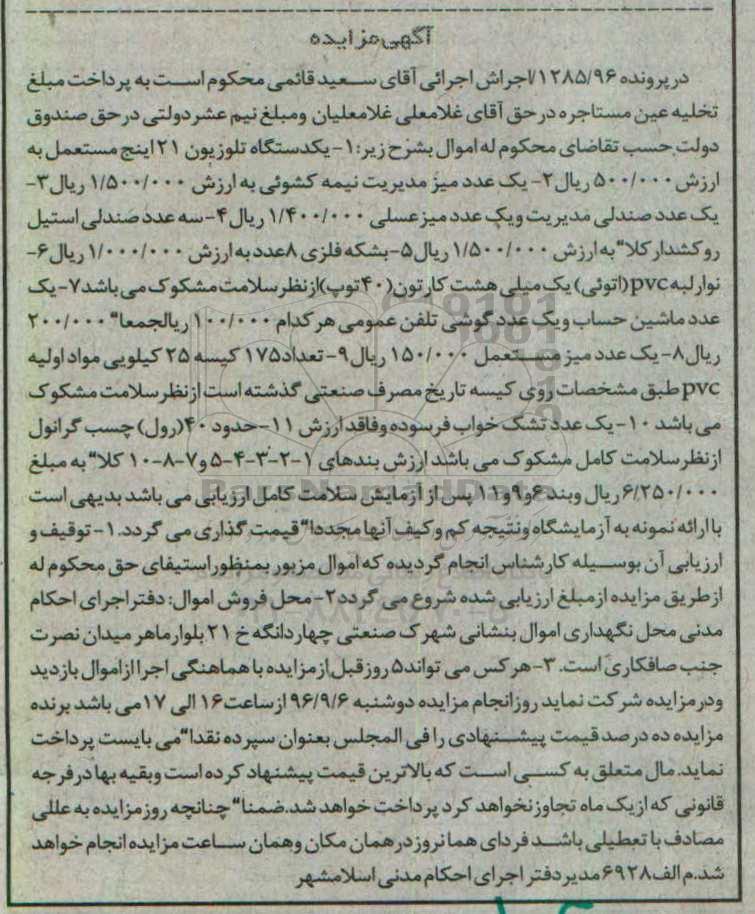 آگهی مزایده
در پرونده ۱۲۸۵/۹۶/اجراش اجرائی آقای سعید قائمی محکوم است به پرداخت مبلغ
تخلیه عین مستاجره در حق آقای غلامعلی غلامعلیان ومبلغ نیم عشر دولتی در حق صندوق
دولت.حسب تقاضای محکوم له اموال بشرح زیر:۱- یکدستگاه تلوزیون ۲۱ اینچ مستعمل به
ارزش ۵۰۰/۰۰۰ ریال۲- یک عدد میز مدیریت نیمه کشوئی به ارزش ۱/۵۰۰/۰۰۰ ریال۳-
یک عدد صندلی مدیریت ویک عدد میز عسلی ۱/۴۰۰/۰۰۰ ریال۴-سه عدد صندلی استیل
روکشدار کلا" به ارزش ۱/۵۰۰/۰۰۰ ریال۵-بشکه فلزی ۸عدد به ارزش ۱/۰۰۰/۰۰۰ ریال۶-
نوار لبه pvc(اتوئی) یک میلی هشت کارتون(۴۰توپ)ازنظر سلامت مشکوک می باشد۷-یک
عدد ماشین حساب ویک عدد گوشی تلفن عمومی هرکدام ۱۰۰/۰۰۰ ریالجمعا" ۲۰۰/۰۰۰
ریال۸- یک عدد میز مستعمل ۱۵۰/۰۰۰ ریال۹- تعداد۱۷۵ کیسه ۲۵ کیلویی مواد اولیه
pvc طبق مشخصات روی کیسه تاریخ مصرف صنعتی گذشته است ازنظر سلامت مشکوک
می باشد ۱۰-یک عدد تشک خواب فرسوده وفاقد ارزش ۱۱-حدود ۴۰(رول) چسب گرانول
ازنظر سلامت کامل مشکوک می باشد ارزش بندهای ۱-۲-۳-۴-۵و۷-۸-۱۰ کلا" به مبلغ
۶/۲۵۰/۰۰۰ ریال وبند ۶و۹و۱۱ پس از آزمایش سلامت کامل ارزیابی می باشد بدیهی است
با ارائه نمونه به آزمایشگاه ونتیجه کم وکیف آنها مجددا" قیمت گذاری می گردد.۱- توقیف و
ارزیابی آن بوسیله کارشناس انجام گردیده که اموال مزبور بمنظور استیفای حق محکوم له
ازطریق مزایده ازمبلغ ارزیابی شده شروع می گردد۲-محل فروش اموال: دفتر اجرای احکام
مدنی محل نگهداری اموال بنشانی شهرک صنعتی چهاردانگه خ ۲۱ بلوار ماهر میدان نصرت
جنب صافکاری است. ۳-هرکس می تواند۵ روز قبل ازمزایده با هماهنگی اجرا ازاموال بازدید
ودر مزایده شرکت نماید روز انجام مزایده دوشنبه ۹۶/۹/۶ ازساعت۱۶ الی ۱۷می باشد برنده
مزایده ده درصد قیمت پیشنهادی را فی المجلس بعنوان سپرده نقدا" می بایست پرداخت
نماید.مال متعلق به کسی است که بالاترین قیمت پیشنهاد کرده است وبقیه بها در فرجه
قانونی که ازیک ماه تجاوز نخواهد کرد پرداخت خواهد شد.ضمنا" چنانچه روز مزایده به عللی
مصادف با تعطیلی باشد فردای همانروز درهمان مکان وهمان ساعت مزایده انجام خواهد
شد.م الف۶۹۲۸ مدیر دفتر اجرای احکام مدنی اسلامشهر